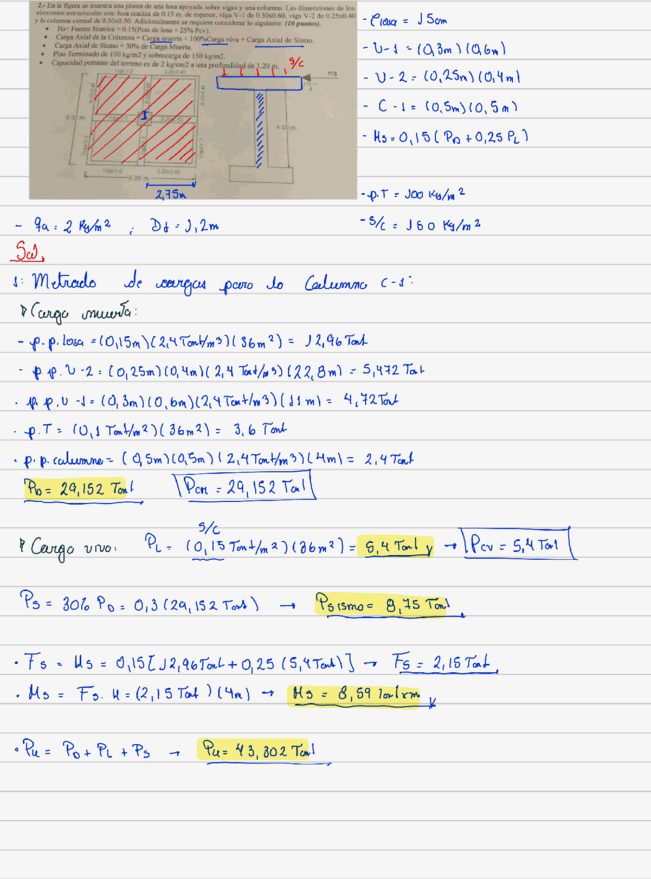 2.- En la figura se muestra una planta de una losa apoyada sobre vigas y una columna. Las dimensiones de los
elementos estructurales son: losa maciza de 0.15 m. de espesor, viga V-1 de 0.30x0.60, viga V-2 de 0.25x0.40
y la columna central de 0.50x0.50. Adicionalmente se requiere considerar lo siguiente: (10 puntos).
• Hs= Fuerza Sísmica = 0.15(Pcm de losa + 25% Pcv).
• Carga Axial de la Columna = Carga muerta + 100%Carga viva + Carga Axial de Sismo.
• Carga Axial de Sismo = 30% de Carga Muerta.
• Piso Terminado de 100 kg/m2 y sobrecarga de 150 kg/m2.
• Capacidad portante del terreno es de 2 kg/cm2 a una profundidad de 1.20 m.
S/C
6.00 m
4.00 m
6.00 m
2,75m
- losa = 15cm
- V-1 = (0,3m)(0,6m)
- V-2 = (0,25m)(0,4m)
- C-1 = (0,5m)(0,5m)
- Hs = 0,15(PD + 0,25 PL)
- p.T = 100 Kg/m²
- S/C = 150 Kg/m²
- qa = 2 Kg/m² ; Df = 1,2m
Sol,
1: Metrado de cargas para la Columna C-1:
Carga muerta:
- p.p. losa = (0,15m)(2,4 Tonf/m³)(36m²) = 12,96 Tonf
- p.p. V-2 = (0,25m)(0,4m)(2,4 Tonf/m³)(22,8m) = 5,472 Tonf
• p.p. V-1 = (0,3m)(0,6m)(2,4 Tonf/m³)(11m) = 4,72 Tonf
• p.T = (0,1 Tonf/m²)(36m²) = 3,6 Tonf
• p.p. columna = (0,5m)(0,5m)(2,4 Tonf/m³)(4m) = 2,4 Tonf
PD = 29,152 Tonf Pcm = 29,152 Tonf
S/C
Carga viva: PL = (0,15 Tonf/m²)(36m²) = 5,4 Tonf → Pcv = 5,4 Tonf
Ps = 30% PD = 0,3(29,152 Tonf) → Psismo = 8,75 Tonf
• Fs = Hs = 0,15[12,96 Tonf + 0,25(5,4 Tonf)] → Fs = 2,15 Tonf
• Ms = Fs. H = (2,15 Tonf)(4m) → Ms = 8,59 Tonfxm
• Pu = PD + PL + Ps → Pu = 43,302 Tonf